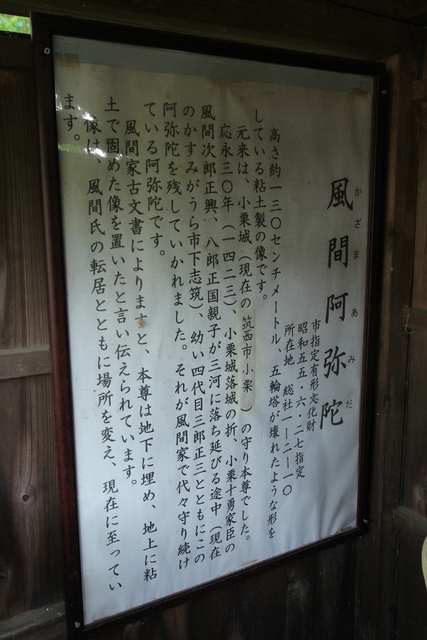 風間阿弥陀
かざまあみだ
市指定有形文化財
昭和五五・六・二七指定
所在地　総社一ー二ー一〇
高さ約一三〇センチメートル、五輪塔が壊れたような形を
している粘土製の像です。
元来は、小栗城（現在の筑西市小栗）の守り本尊でした。
応永三〇年（一四二三）、小栗城落城の折、小栗十勇家臣の
風間次郎正興、八郎正国親子が三河に落ち延びる途中（現在
のかすみがうら市下志筑）、幼い四代目三郎正三とともにこの
阿弥陀を残していかれました。それが風間家で代々守り続け
ている阿弥陀です。
風間家古文書によりますと、本尊は地下に埋め、地上に粘
土で固めた像を置いたと言い伝えられています。
像は、風間氏の転居とともに場所を変え、現在に至ってい
ます。